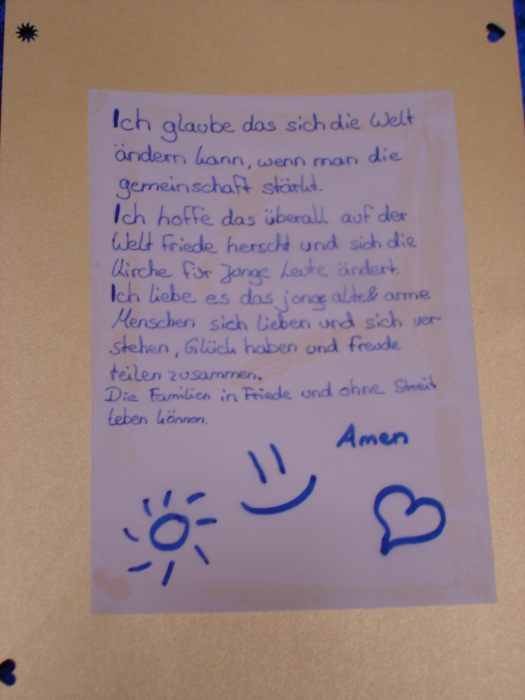 Ich glaube das sich die Welt
ändern kann, wenn man die
gemeinschaft stärkt.
Ich hoffe das überall auf der
Welt Friede herscht und sich die
Kirche für Junge Leute ändert.
Ich liebe es das jonge alte & arme
Menschen sich lieben und sich ver-
stehen, Glück haben und freude
teilen zusammen.
Die Familien in Friede und ohne Streit
leben können.
Amen